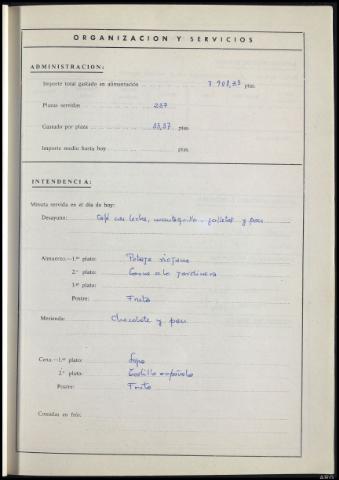 ORGANIZACION Y SERVICIOS
ADMINISTRACION:
Importe total gastado en alimentación 7.908,73 ptas.
Plazas servidas 237
Gastado por plaza 33,37 ptas.
Importe medio hasta hoy ptas.
INTENDENCIA:
Minuta servida en el día de hoy:
Desayuno: Café con leche, mantequilla, galletas y pan
Almuerzo.—1.er plato: Potaje riojano
2.º plato: Carne a la jardinera
3.er plato:
Postre: Fruta
Merienda: Chocolate y pan
Cena.—1.er plato: Sopa
2.º plato: Tortilla española
Postre: Fruta
Comidas en frío: